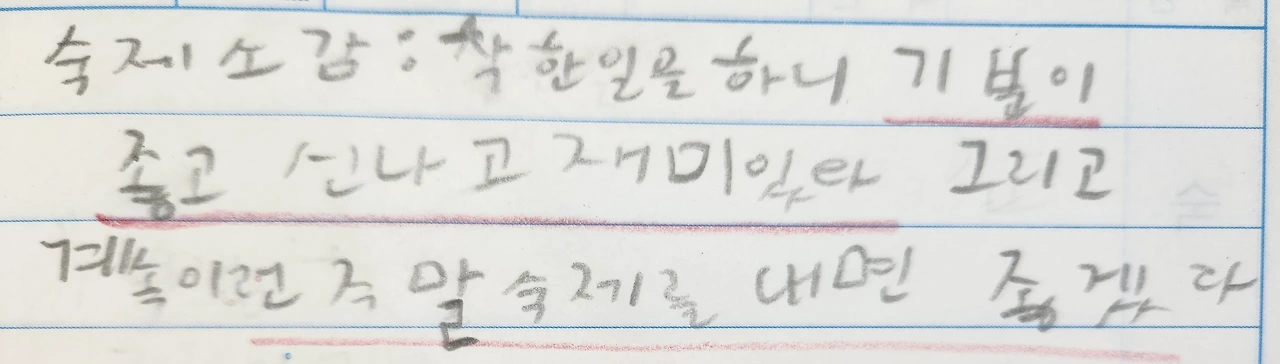 숙제소감: 착한일을하니 기분이
좋고 신나고 재미있다 그리고
계속이런 주말숙제를 내면 좋겠다